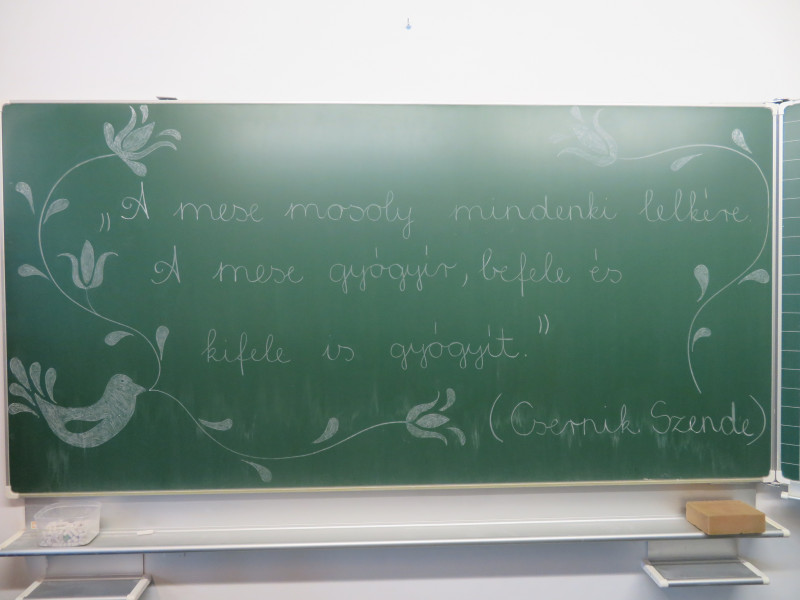 „A mese mosoly mindenki lelkére.
A mese gyógyír, befele és
kifele is gyógyít."
(Csernik Szende)